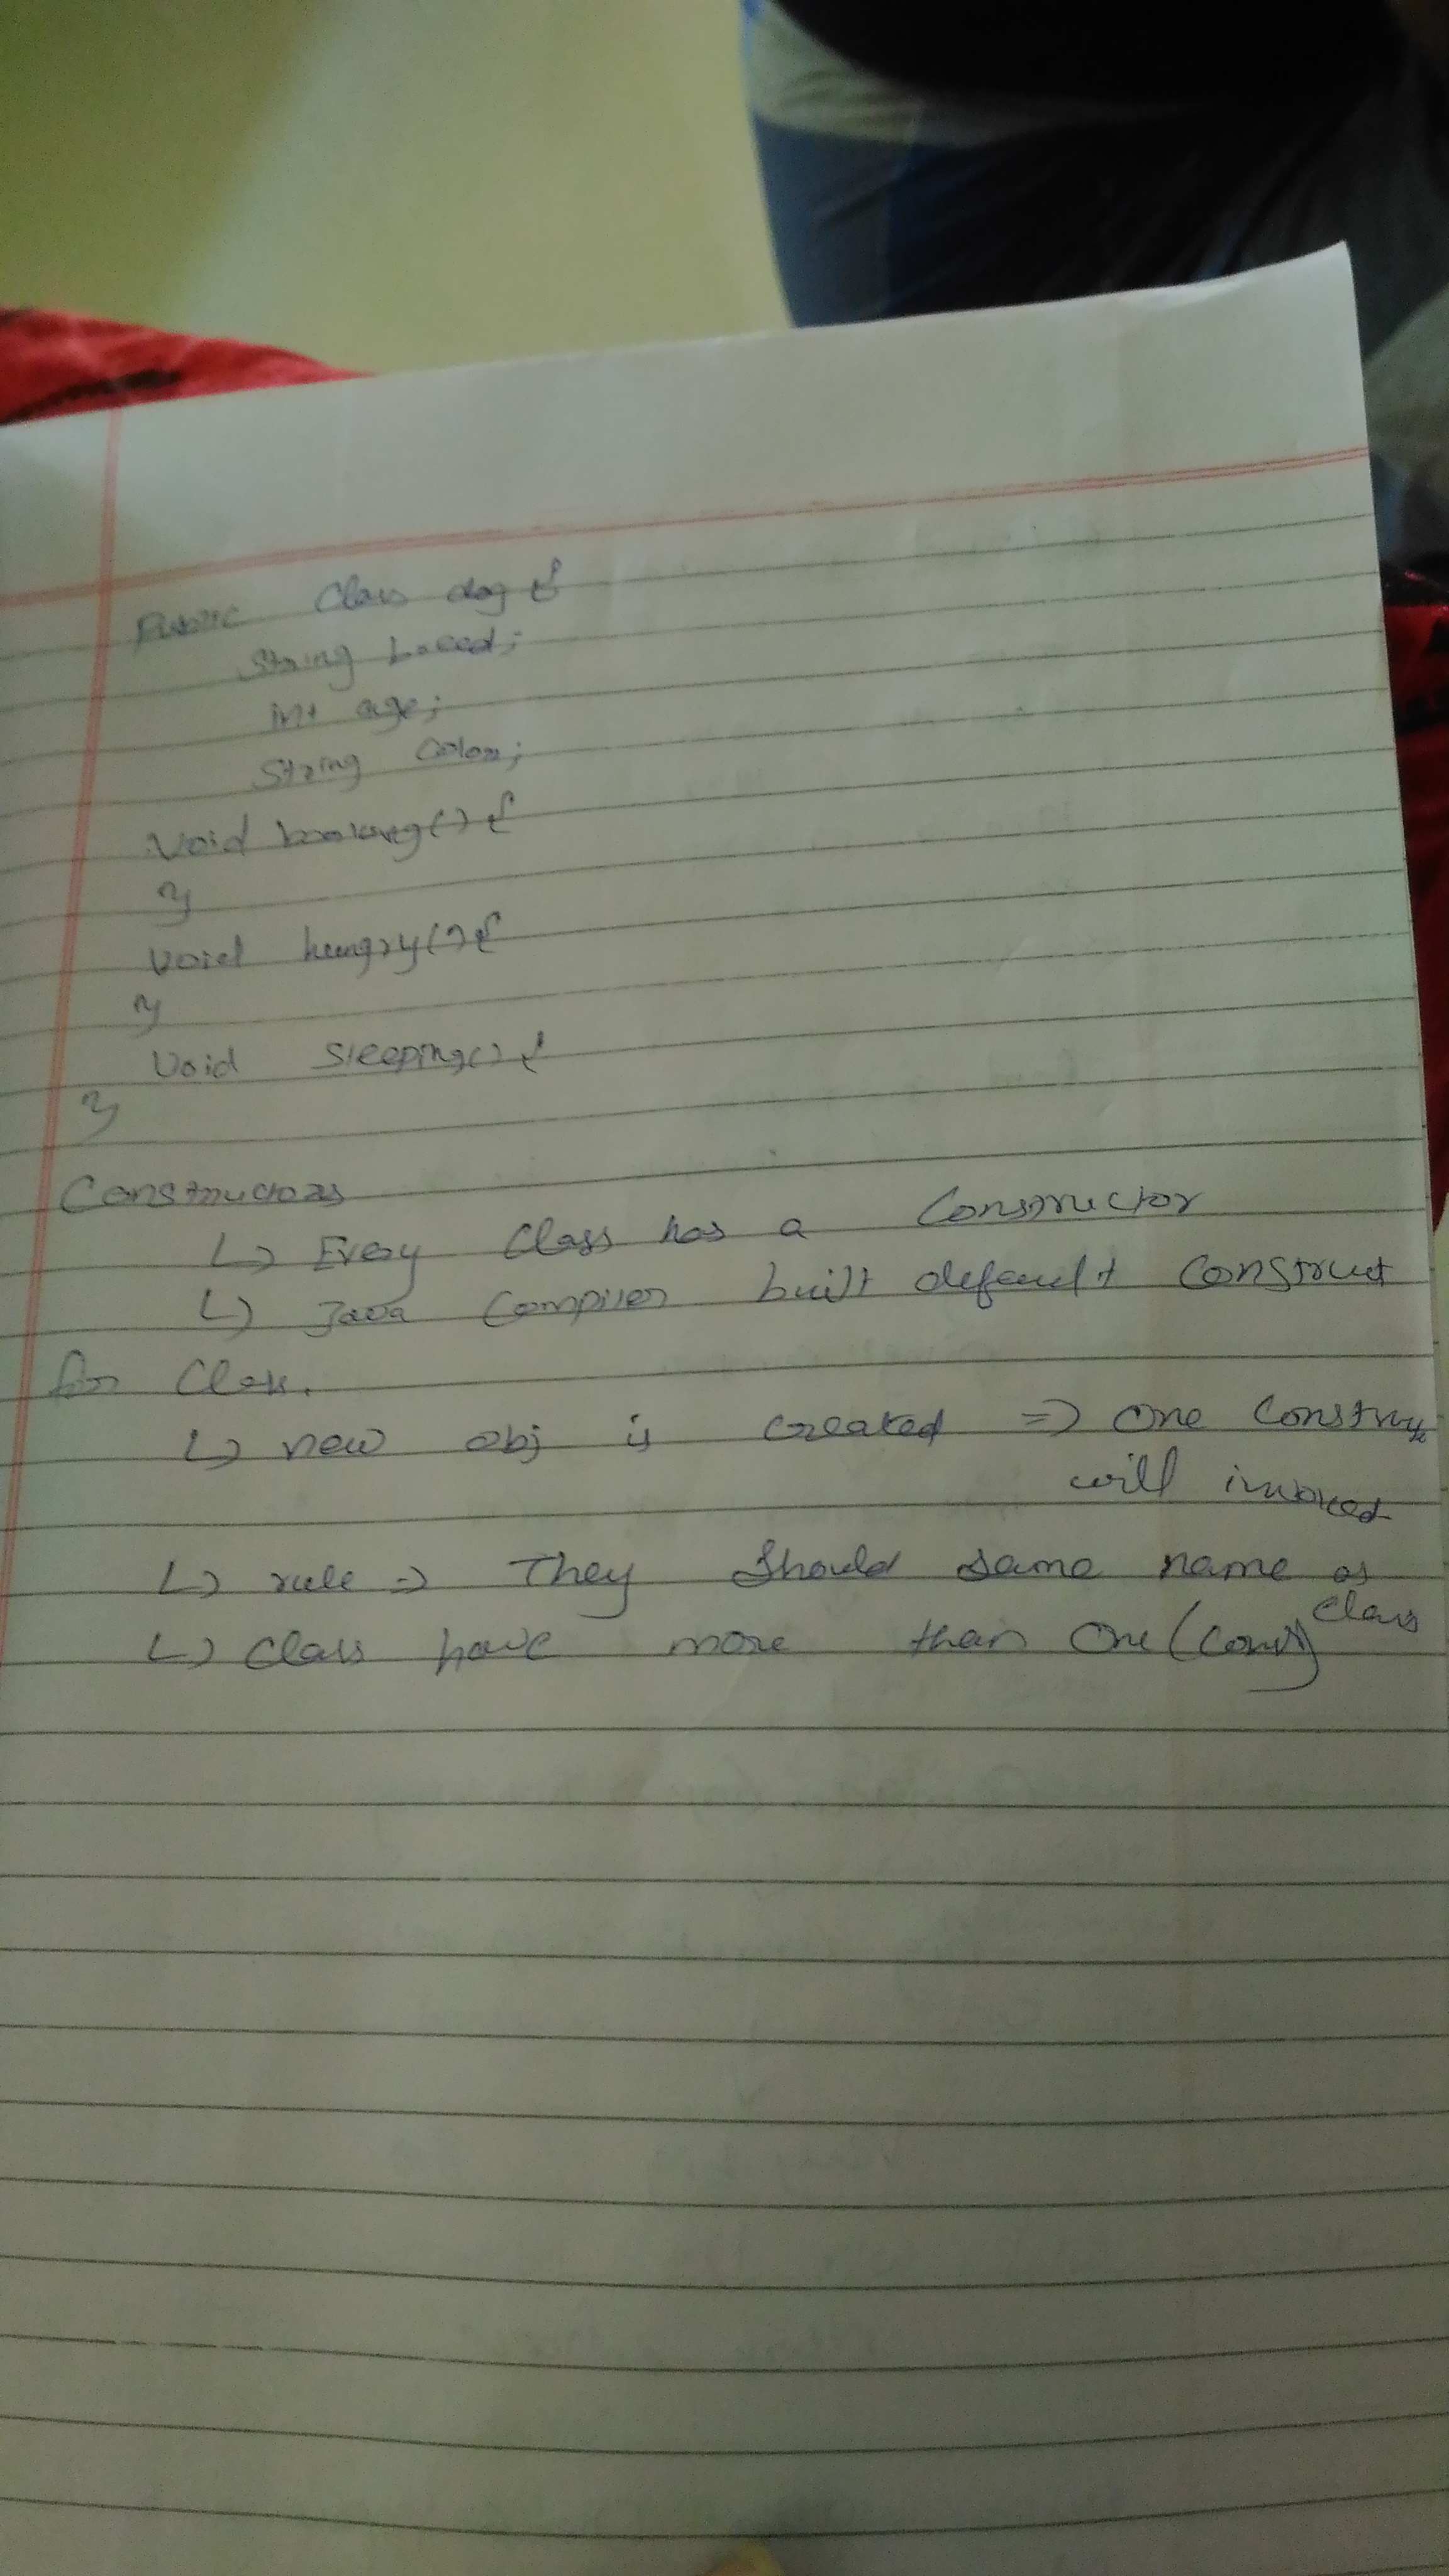 Public Class dog {
String breed;
int age;
String Color;
Void barking() {
}
Void hungry() {
}
Void sleeping() {
}
Constructors
↳ Every Class has a Constructor
↳ Java Compiler built default Construct
for Class.
↳ new obj is created => One Construc
will invoked
↳ rule => They Should same name as
Class
↳ Class have more than One (Const)